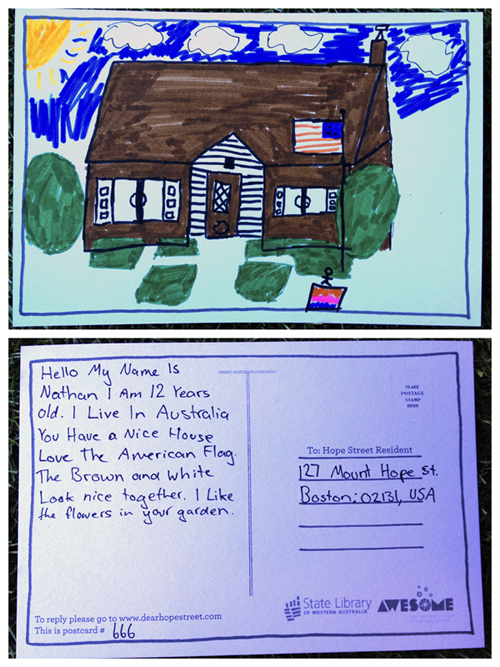 Hello My Name Is
Nathan I Am 12 Years
old. I Live In Australia
You Have a Nice House
Love The American Flag.
The Brown and White
Look nice together. I Like
the flowers in your garden.
To reply please go to www.dearhopestreet.com
This is postcard # 666
PLACE
POSTAGE
STAMP
HERE
To: Hope Street Resident
127 Mount Hope St.
Boston: 02131, USA
State Library
OF WESTERN AUSTRALIA
AWESOME